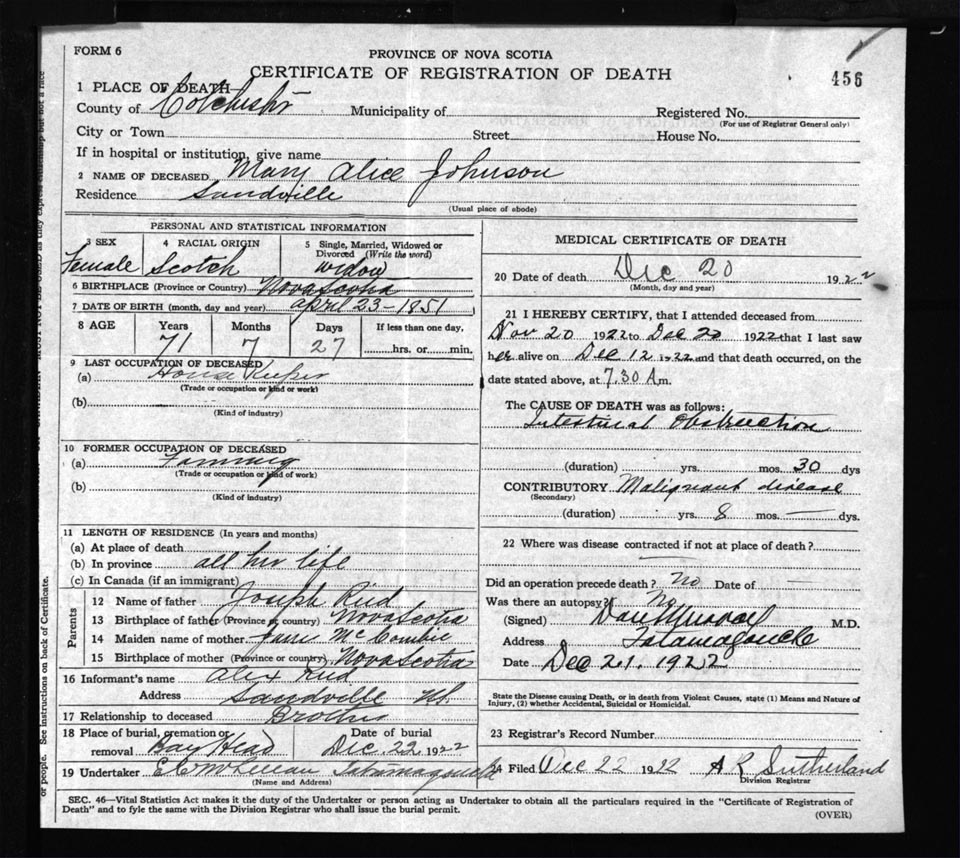 FORM 6
PROVINCE OF NOVA SCOTIA
CERTIFICATE OF REGISTRATION OF DEATH
456
1 PLACE OF DEATH
County of Colchester Municipality of Registered No.
(For use of Registrar General only)
City or Town Street House No.
If in hospital or institution, give name
2 NAME OF DECEASED Mary Alice Johnson
Residence Sandville
(Usual place of abode)
PERSONAL AND STATISTICAL INFORMATION
3 SEX 4 RACIAL ORIGIN 5 Single, Married, Widowed or Divorced (Write the word)
Female Scotch Widow
6 BIRTHPLACE (Province or Country) Nova Scotia
7 DATE OF BIRTH (month, day and year) April 23-1851
8 AGE Years Months Days If less than one day,
71 7 27 hrs. or min.
9 LAST OCCUPATION OF DECEASED
(a) House Keeper
(Trade or occupation or kind or work)
(b)
(Kind of industry)
10 FORMER OCCUPATION OF DECEASED
(a) Farming
(Trade or occupation or kind of work)
(b)
(Kind of industry)
11 LENGTH OF RESIDENCE (In years and months)
(a) At place of death
(b) In province all her life
(c) In Canada (if an immigrant)
Parents
12 Name of father Joseph Reid
13 Birthplace of father (Province or country) Nova Scotia
14 Maiden name of mother McCombie
15 Birthplace of mother (Province or country) Nova Scotia
16 Informant's name Alex Reid
Address Sandville NS.
17 Relationship to deceased Brother
18 Place of burial, cremation or Date of burial
removal Bay Head Dec. 22 1922
19 Undertaker Tatamagouche
(Name and Address)
MEDICAL CERTIFICATE OF DEATH
20 Date of death Dec 20 1922
(Month, day and year)
21 I HEREBY CERTIFY, that I attended deceased from
Nov 20 1922 to Dec 20 1922 that I last saw
her alive on Dec 12 1922 and that death occurred, on the
date stated above, at 7.30 A.m.
The CAUSE OF DEATH was as follows:
Intestinal Obstruction
(duration) yrs. mos. 30 dys
CONTRIBUTORY Malignant disease
(Secondary)
(duration) yrs. 8 mos. — dys.
22 Where was disease contracted if not at place of death?
—
Did an operation precede death? No Date of —
Was there an autopsy? No
(Signed) M.D.
Address Tatamagouche
Date Dec 21. 1922
State the Disease causing Death, or in death from Violent Causes, state (1) Means and Nature of
Injury, (2) whether Accidental, Suicidal or Homicidal.
23 Registrar's Record Number
24 Filed Dec 22 1922 A R Sutherland
Division Registrar
SEC. 46—Vital Statistics Act makes it the duty of the Undertaker or person acting as Undertaker to obtain all the particulars required in the "Certificate of Registration of
Death" and to fyle the same with the Division Registrar who shall issue the burial permit.
(OVER)
or people. See instructions on back of Certificate.